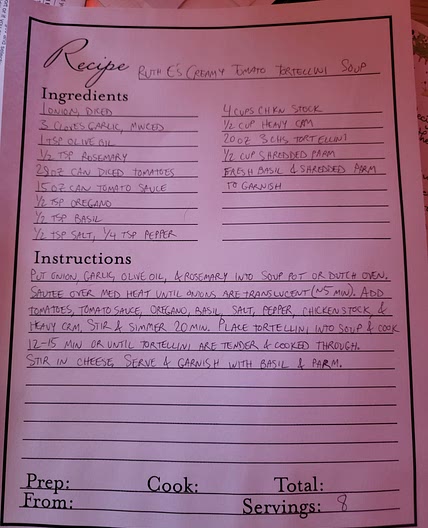 Recipe Ruth E's Creamy Tomato Tortellini Soup
Ingredients
1 onion, diced
3 cloves garlic, minced
1 tsp olive oil
1/2 tsp rosemary
28oz can diced tomatoes
15 oz can tomato sauce
1/2 tsp oregano
1/2 tsp basil
1/2 tsp salt, 1/4 tsp pepper
4 cups chkn stock
1/2 cup heavy crm
20oz 3 chs tortellini
1/2 cup shredded parm
Fresh basil & shredded parm
to garnish
Instructions
Put onion, garlic, olive oil, & rosemary into soup pot or dutch oven.
Sautee over med heat until onions are translucent (~5 min). Add
tomatoes, tomato sauce, oregano, basil, salt, pepper, chicken stock, &
heavy crm. Stir & simmer 20 min. Place tortellini into soup & cook
12-15 min or until tortellini are tender & cooked through.
Stir in cheese, serve & garnish with basil & parm.
Prep: Cook: Total:
From: Servings: 8